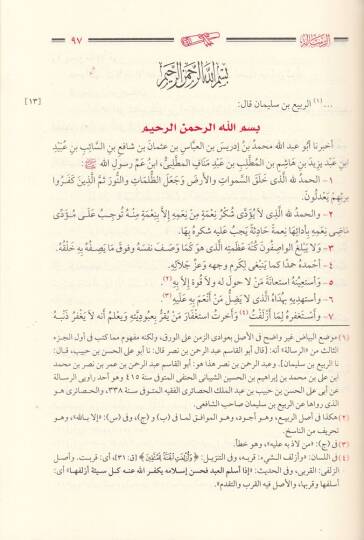 الرسالة ٩٧
بسم الله الرحمن الرحيم
[١٣] ...(١) الربيع بن سليمان قال:
بسم الله الرحمن الرحيم
أخبرنا أبو عبد الله محمدُ بنُ إدريسَ بنِ العباسِ بنِ عثمانَ بنِ شافعِ بنِ السَّائبِ بنِ عُبَيْدِ
ابنِ عَبدِ يزيدَ بنِ هَاشِمِ بنِ المُطَّلِبِ بنِ عبدِ مَنَافِ المطَّلِبيُّ، ابنُ عمِّ رسولِ الله ﷺ:
١ - الحمد لله الَّذي خَلَقَ السَّمواتِ والأرضَ وَجَعَلَ الظُّلُمَاتِ والنُّورَ ثمَّ الَّذينَ كَفَروا
بربِّهمْ يَعْدلُونَ.
٢ - والحمدُ لله الَّذي لا يُؤَدَّى شُكْرُ نعْمَةٍ منْ نعَمِهِ إلاَّ بنعمَةٍ منْهُ تُوجبُ عَلَى مُؤَدِّى
مَاضِي نِعَمِهِ بأدائهَا نعمةً حادِثَةً يَجبُ عليه شكرُهُ بهَا.
٣ - وَلا يَبْلُغُ الواصِفُونَ كُنْهَ عَظَمَتِهِ الَّذي هو كمَا وَصَفَ نفسَهُ وفوقَ مَا يَصِفُهُ بهِ خَلْقُهُ.
٤ - أحْمَدُهُ حمدًا كما يَنْبَغى لكَرمِ وجههِ وَعِزِّ جَلالِهِ.
٥ - وأستَعِينُهُ استعانَةَ مَنْ لا حولَ له ولا قُوةَ إلاَّ بهِ(٢).
٦ - وأستهديهِ بهُداهُ الَّذي لا يَضِلُّ مَنْ أنْعَمَ بهِ عليهِ(٣)
٧ - وأستَغْفِرُهُ لِمَا أزْلَفْتُ(٤) وأخرتُ استغْفَارَ مَنْ يُقِرُّ بعبوديَّتِهِ ويعلمُ أنه لا يَغْفرُ ذَنْبَهُ
(١) موضع البياض غير واضح في الأصل بعوادى الزمن على الورق، ولكنه مفهوم مما كتب فى أول الجزء
الثالث من «الرسالة» أنه: [قال أبو القاسم عبد الرحمن بن نصر قال: نا أبو على الحسن بن حبيب، قال:
نا الربيع بن سليمان]. وعبد الرحمن بن نصر هذا هو: أبو القاسم عبد الرحمن بن عمر بن نصر بن محمد
ابن على بن محمد بن إبراهيم بن الحسين الشيبانى المتوفى سنة ٤١٥ وهو أحد راويى الرسالة
عن أبى على الحسن بن حبيب بن عبد الملك الحصائرى الفقيه المتوفى سنة ٣٣٨، والحصائرى هو
الذى رواها عن الربيع بن سليمان صاحب الشافعى.
(٢) هكذا فى أصل الربيع، وهو أجود، وهو الموافق لما فى (ب) و (ج)، وفى (س): «إلا بالله»، وهو
تحريف من الناسخ.
(٣) فى (ج): «من لاذ به عليه»، وهو خطأ.
(٤) فى اللسان: «وأزلف الشىء»: قربه، وفى التنزيل: ﴿وَأُزْلِفَتِ الْجَنَّةُ لِلْمُتَّقِينَ﴾ [ق: ٣١]، أى: قربت. وأصل
الزلفى: القربى، وفى الحديث: «إذا أسلم العبد فحسن إسلامه يكفر الله عنه كل سيئة أزلفها» أى:
أسلفها وقربها، والأصل فيه القرب والتقدم».